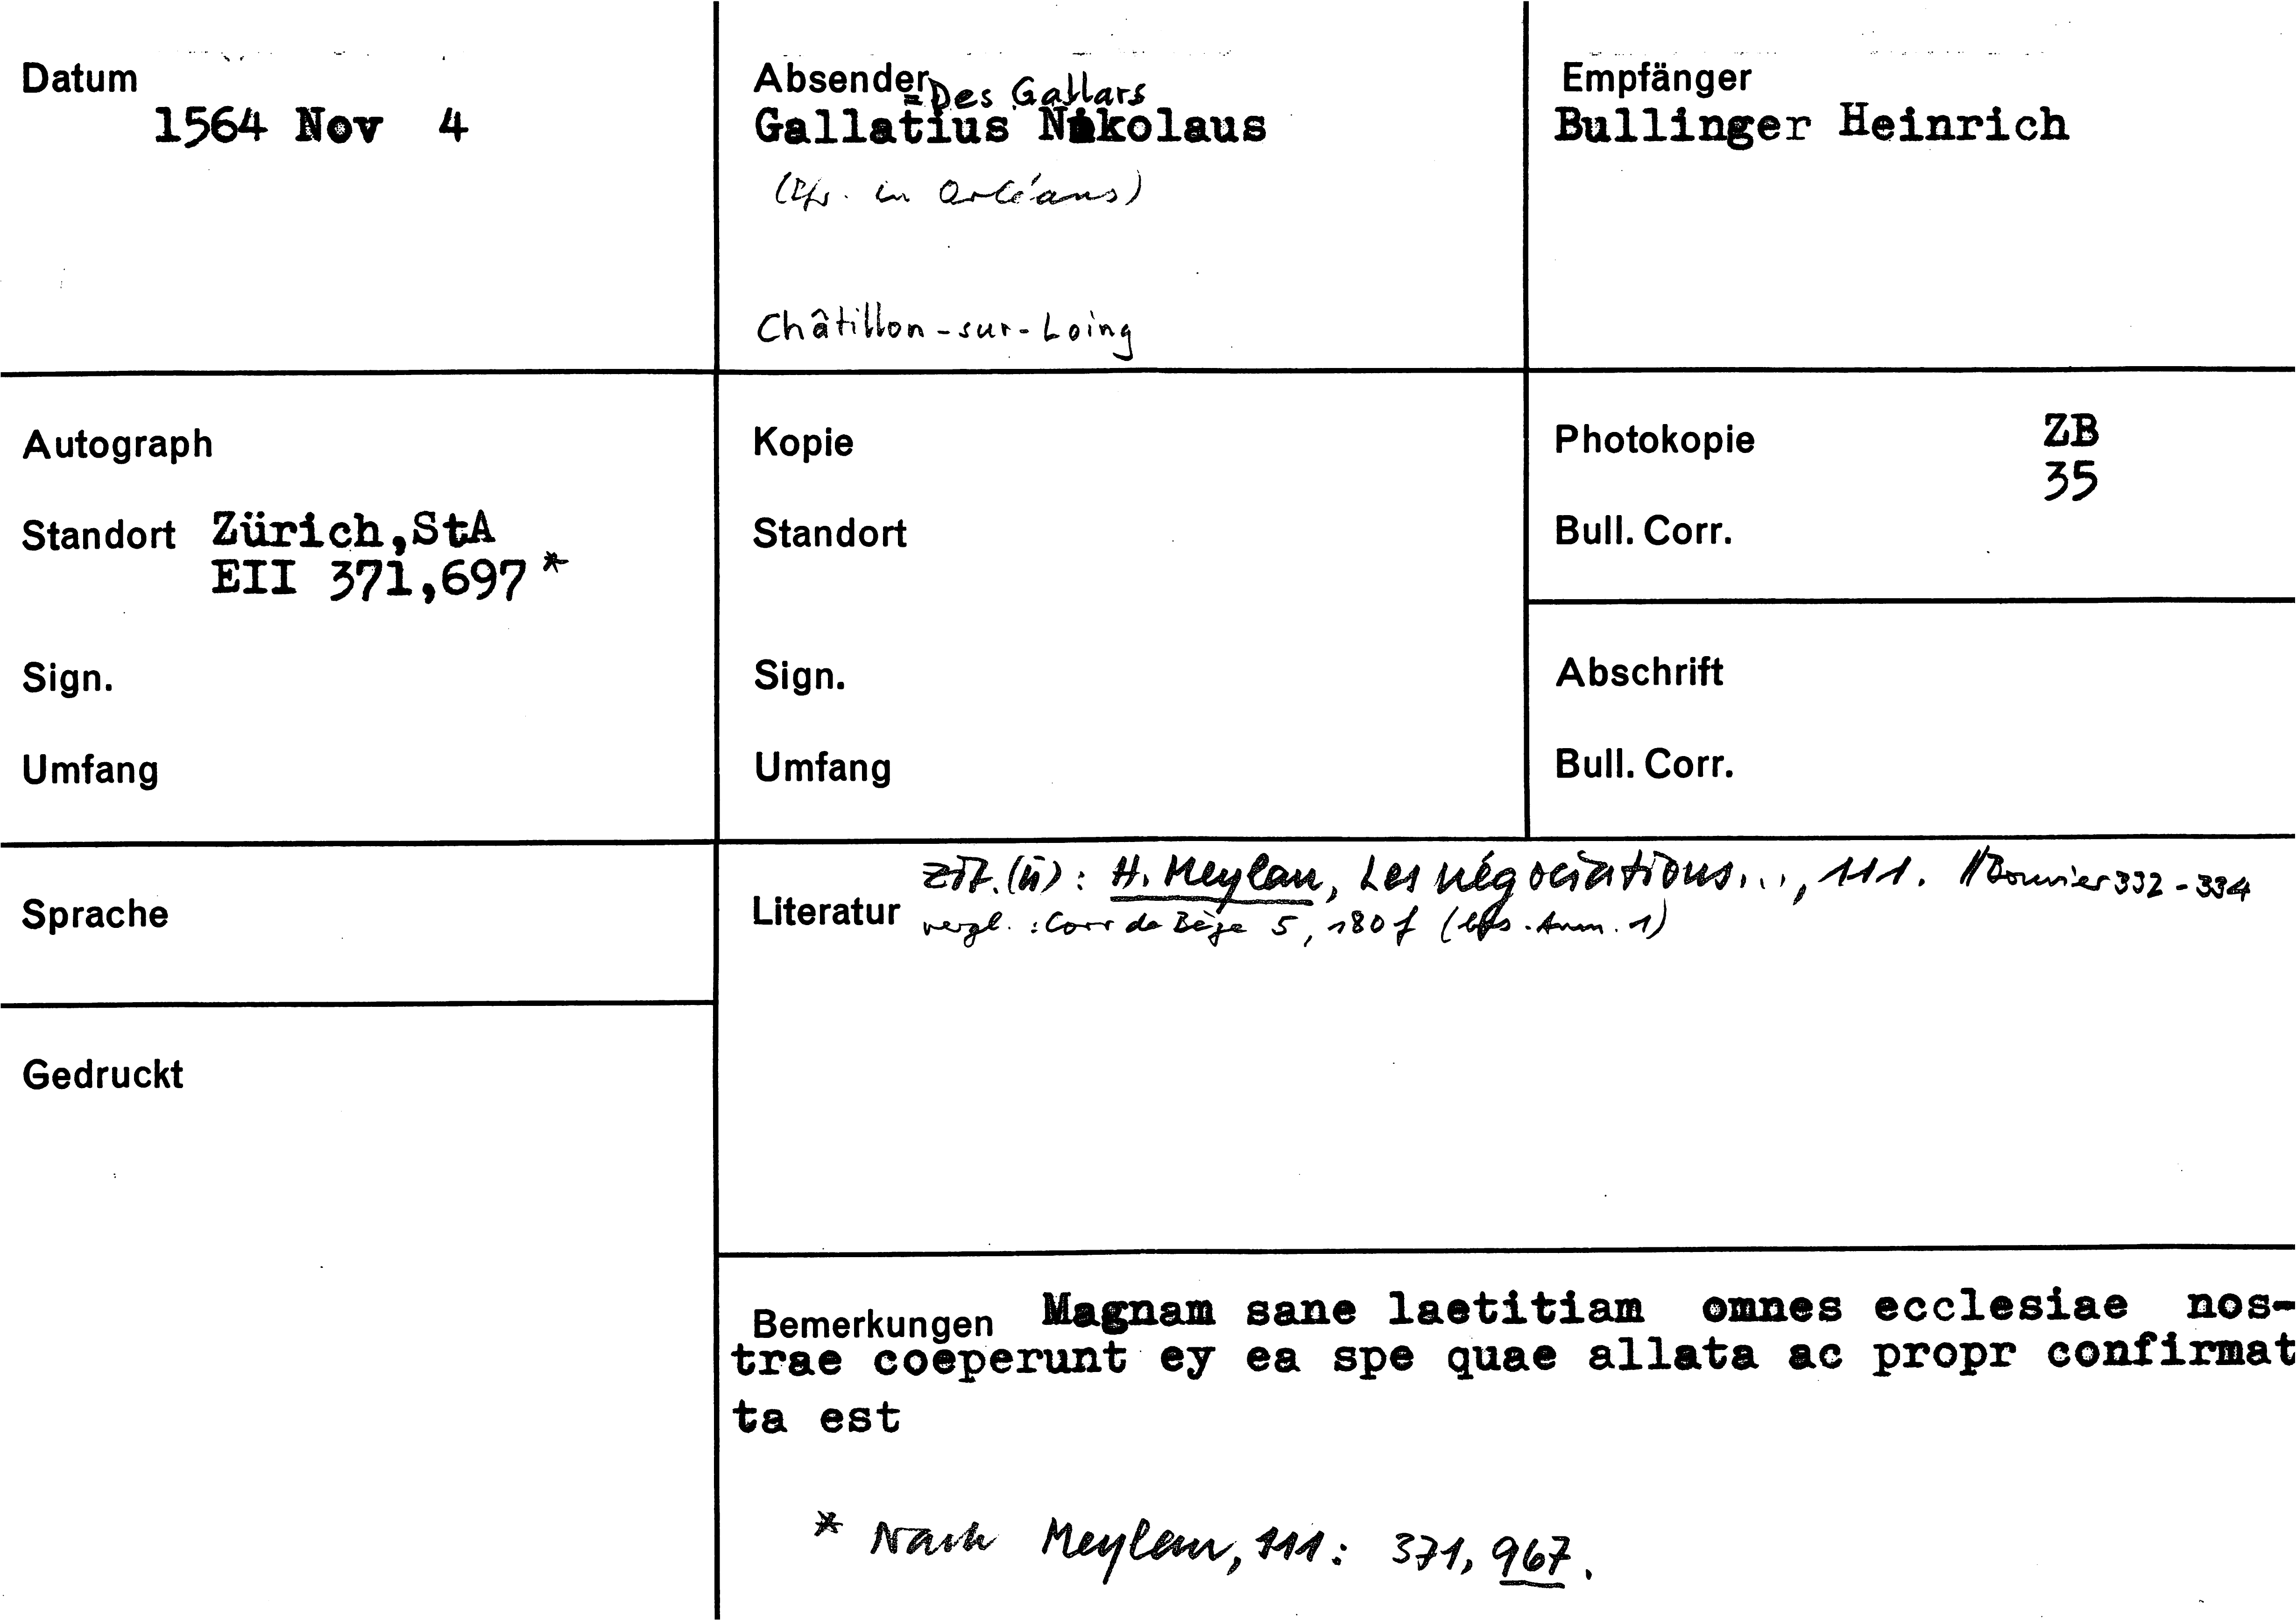 Datum
1564 Nov 4
Absender
= Des Gallars
Gallatius Nikolaus
(Pfr. in Orléans)
Châtillon-sur-Loing
Empfänger
Bullinger Heinrich
Autograph
Standort Zürich,StA
EII 371,697 *
Sign.
Umfang
Kopie
Standort
Sign.
Umfang
Photokopie ZB
35
Bull. Corr.
Abschrift
Bull. Corr.
Sprache
Gedruckt
Literatur
zit. (ü): H. Meylan, Les négociations..., 111. // Bouvier 332-334
vergl.: Corr de Bèze 5, 180 f (bes. Anm. 1)
Bemerkungen Magnam sane laetitiam omnes ecclesiae nos-
trae coeperunt ey ea spe quae allata ac propr confirmat
ta est
* Nach Meylan, 111: 371, 967.